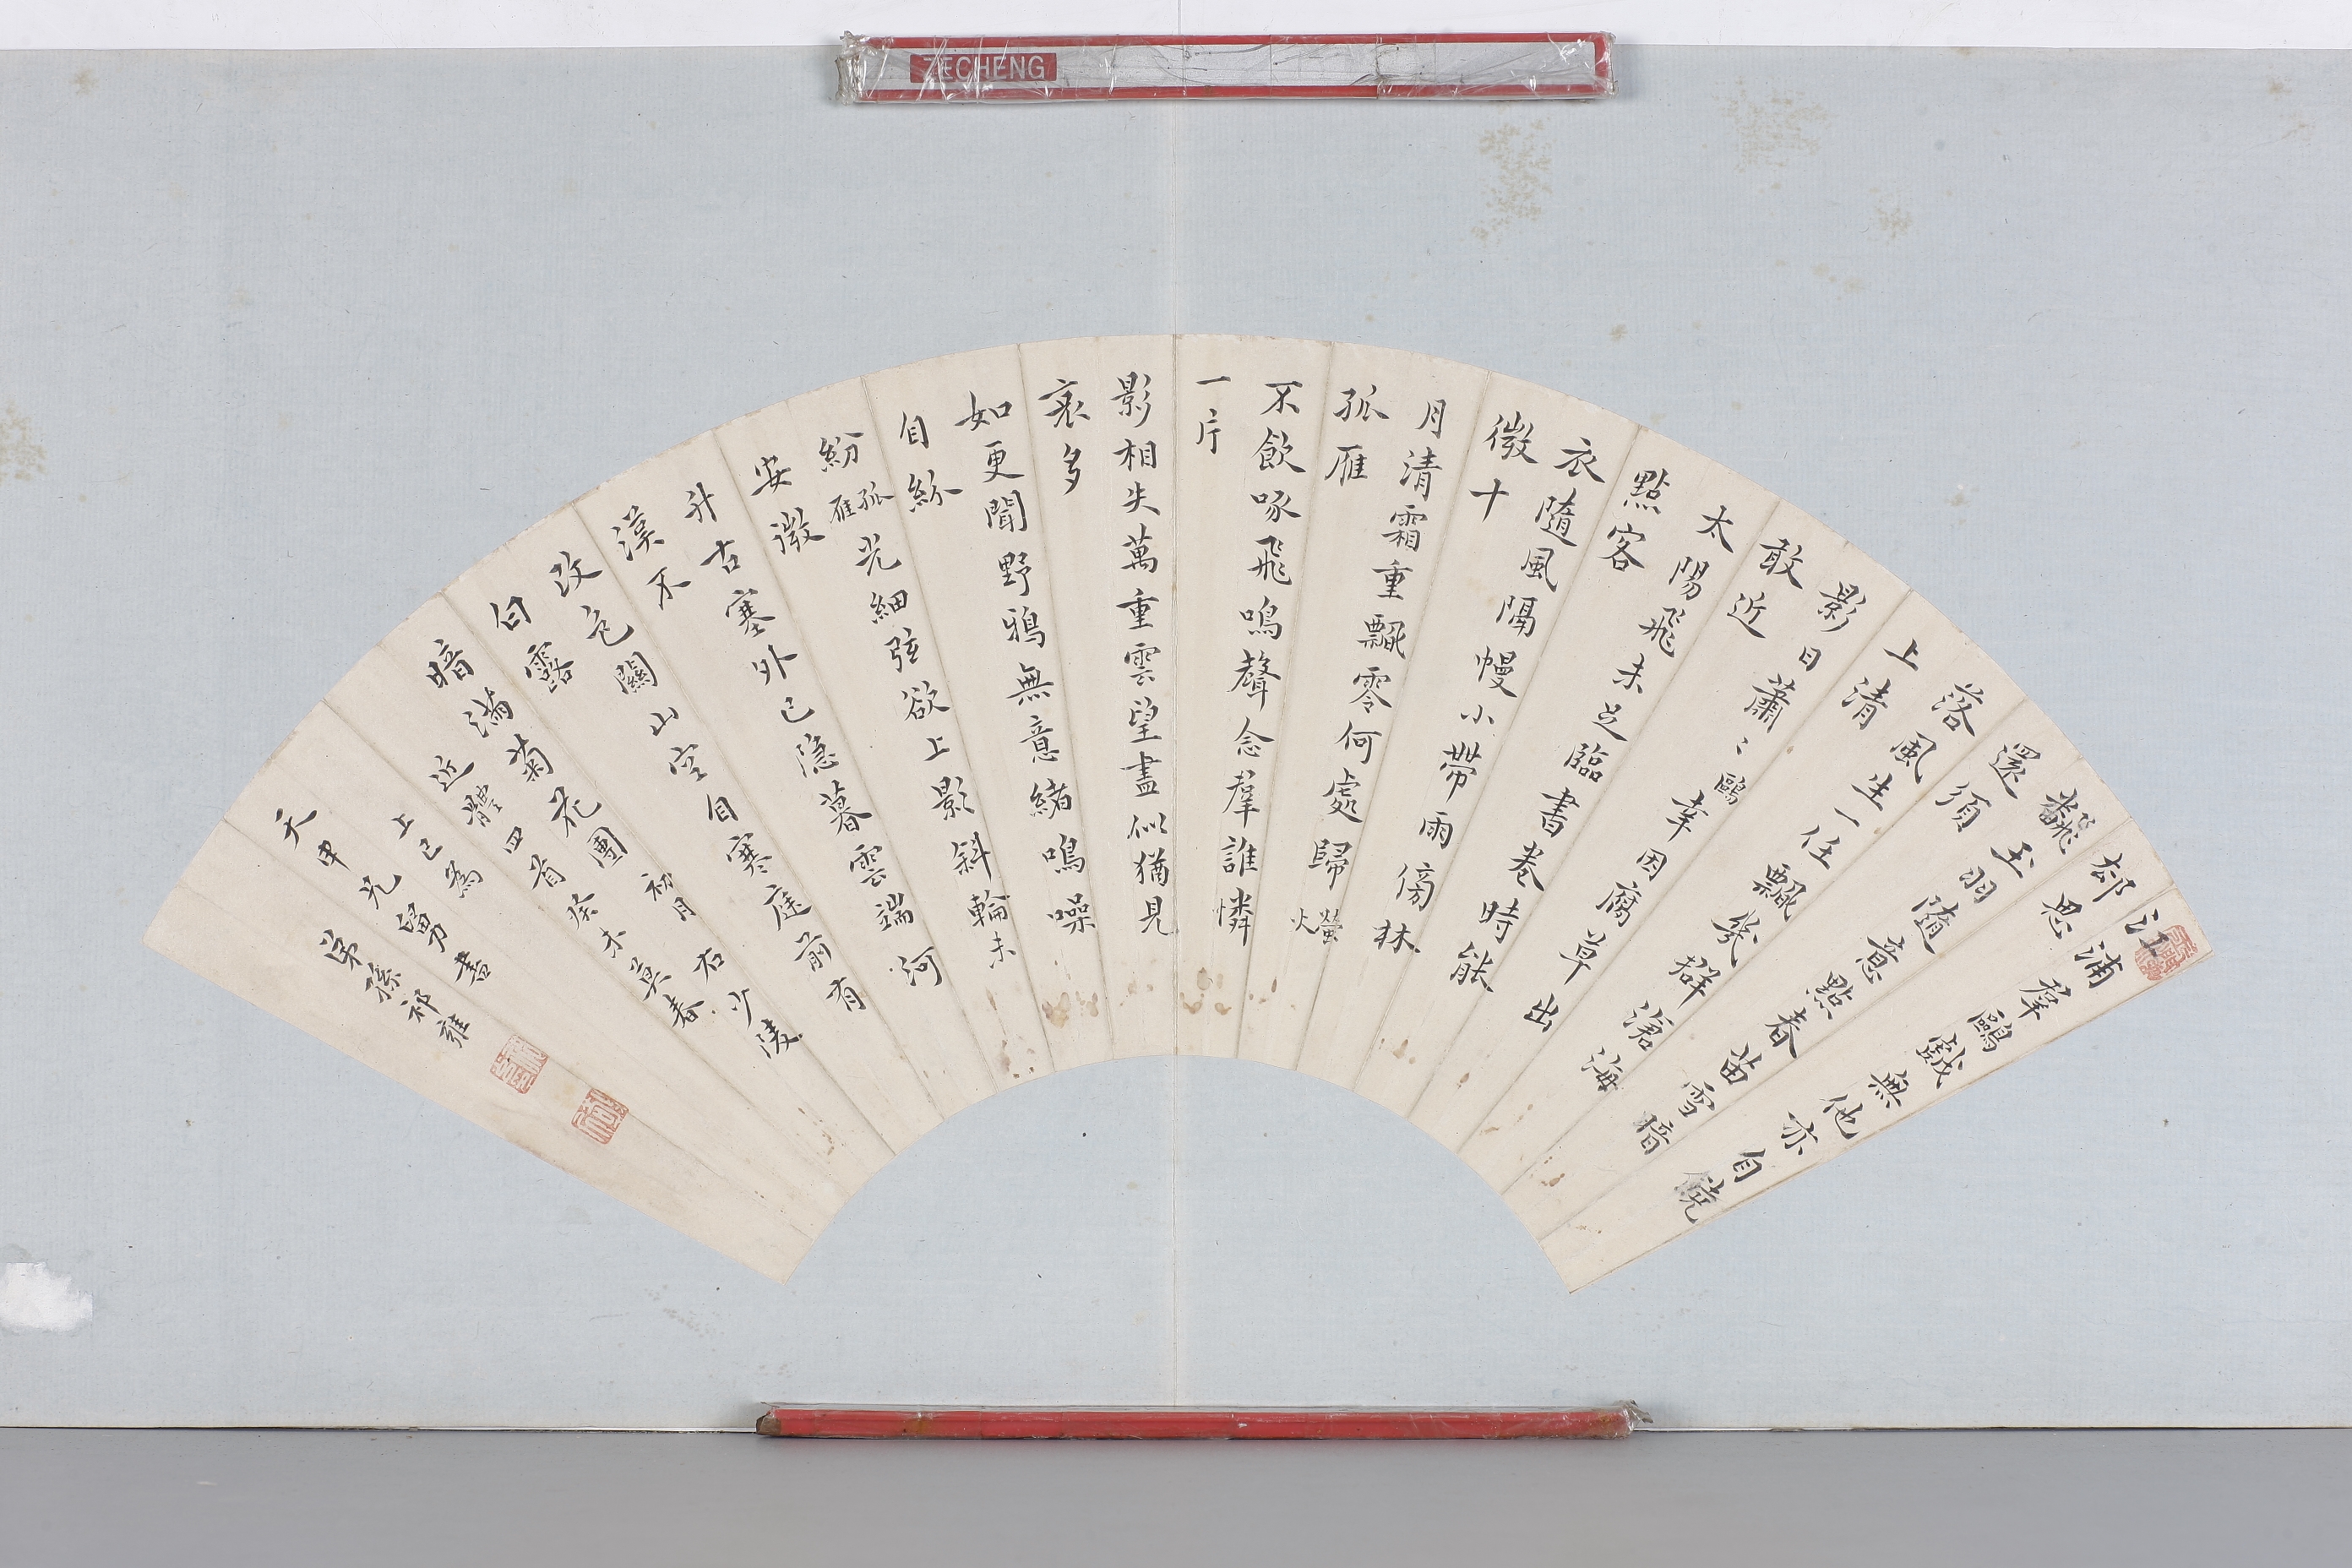 ZECHENG
江浦羣鷗戲無他亦自饒
却思
翻玉羽隨意點春苗雪暗
還須
落風生一任飄幾群滄海
上清
影日蕭〻鷗幸因腐草出
敢近
太陽飛未足臨書卷時能
點客
衣隨風隔幔小帶雨傍林
微十
月清霜重飄零何處歸螢火
孤雁
不飲啄飛鳴聲念羣誰憐
一片
影相失萬重雲望盡似猶見
哀多
如更聞野鴉無意緒鳴噪
自紛
紛孤雁光細弦欲上影斜輪未
安微
升古塞外已隱暮雲端河
漢不
改色關山空自寒庭前有
白露
暗滿菊花團初月右少陵
近體四首癸未莫春
上巳為
天申兄舅書
弟孫祁雍